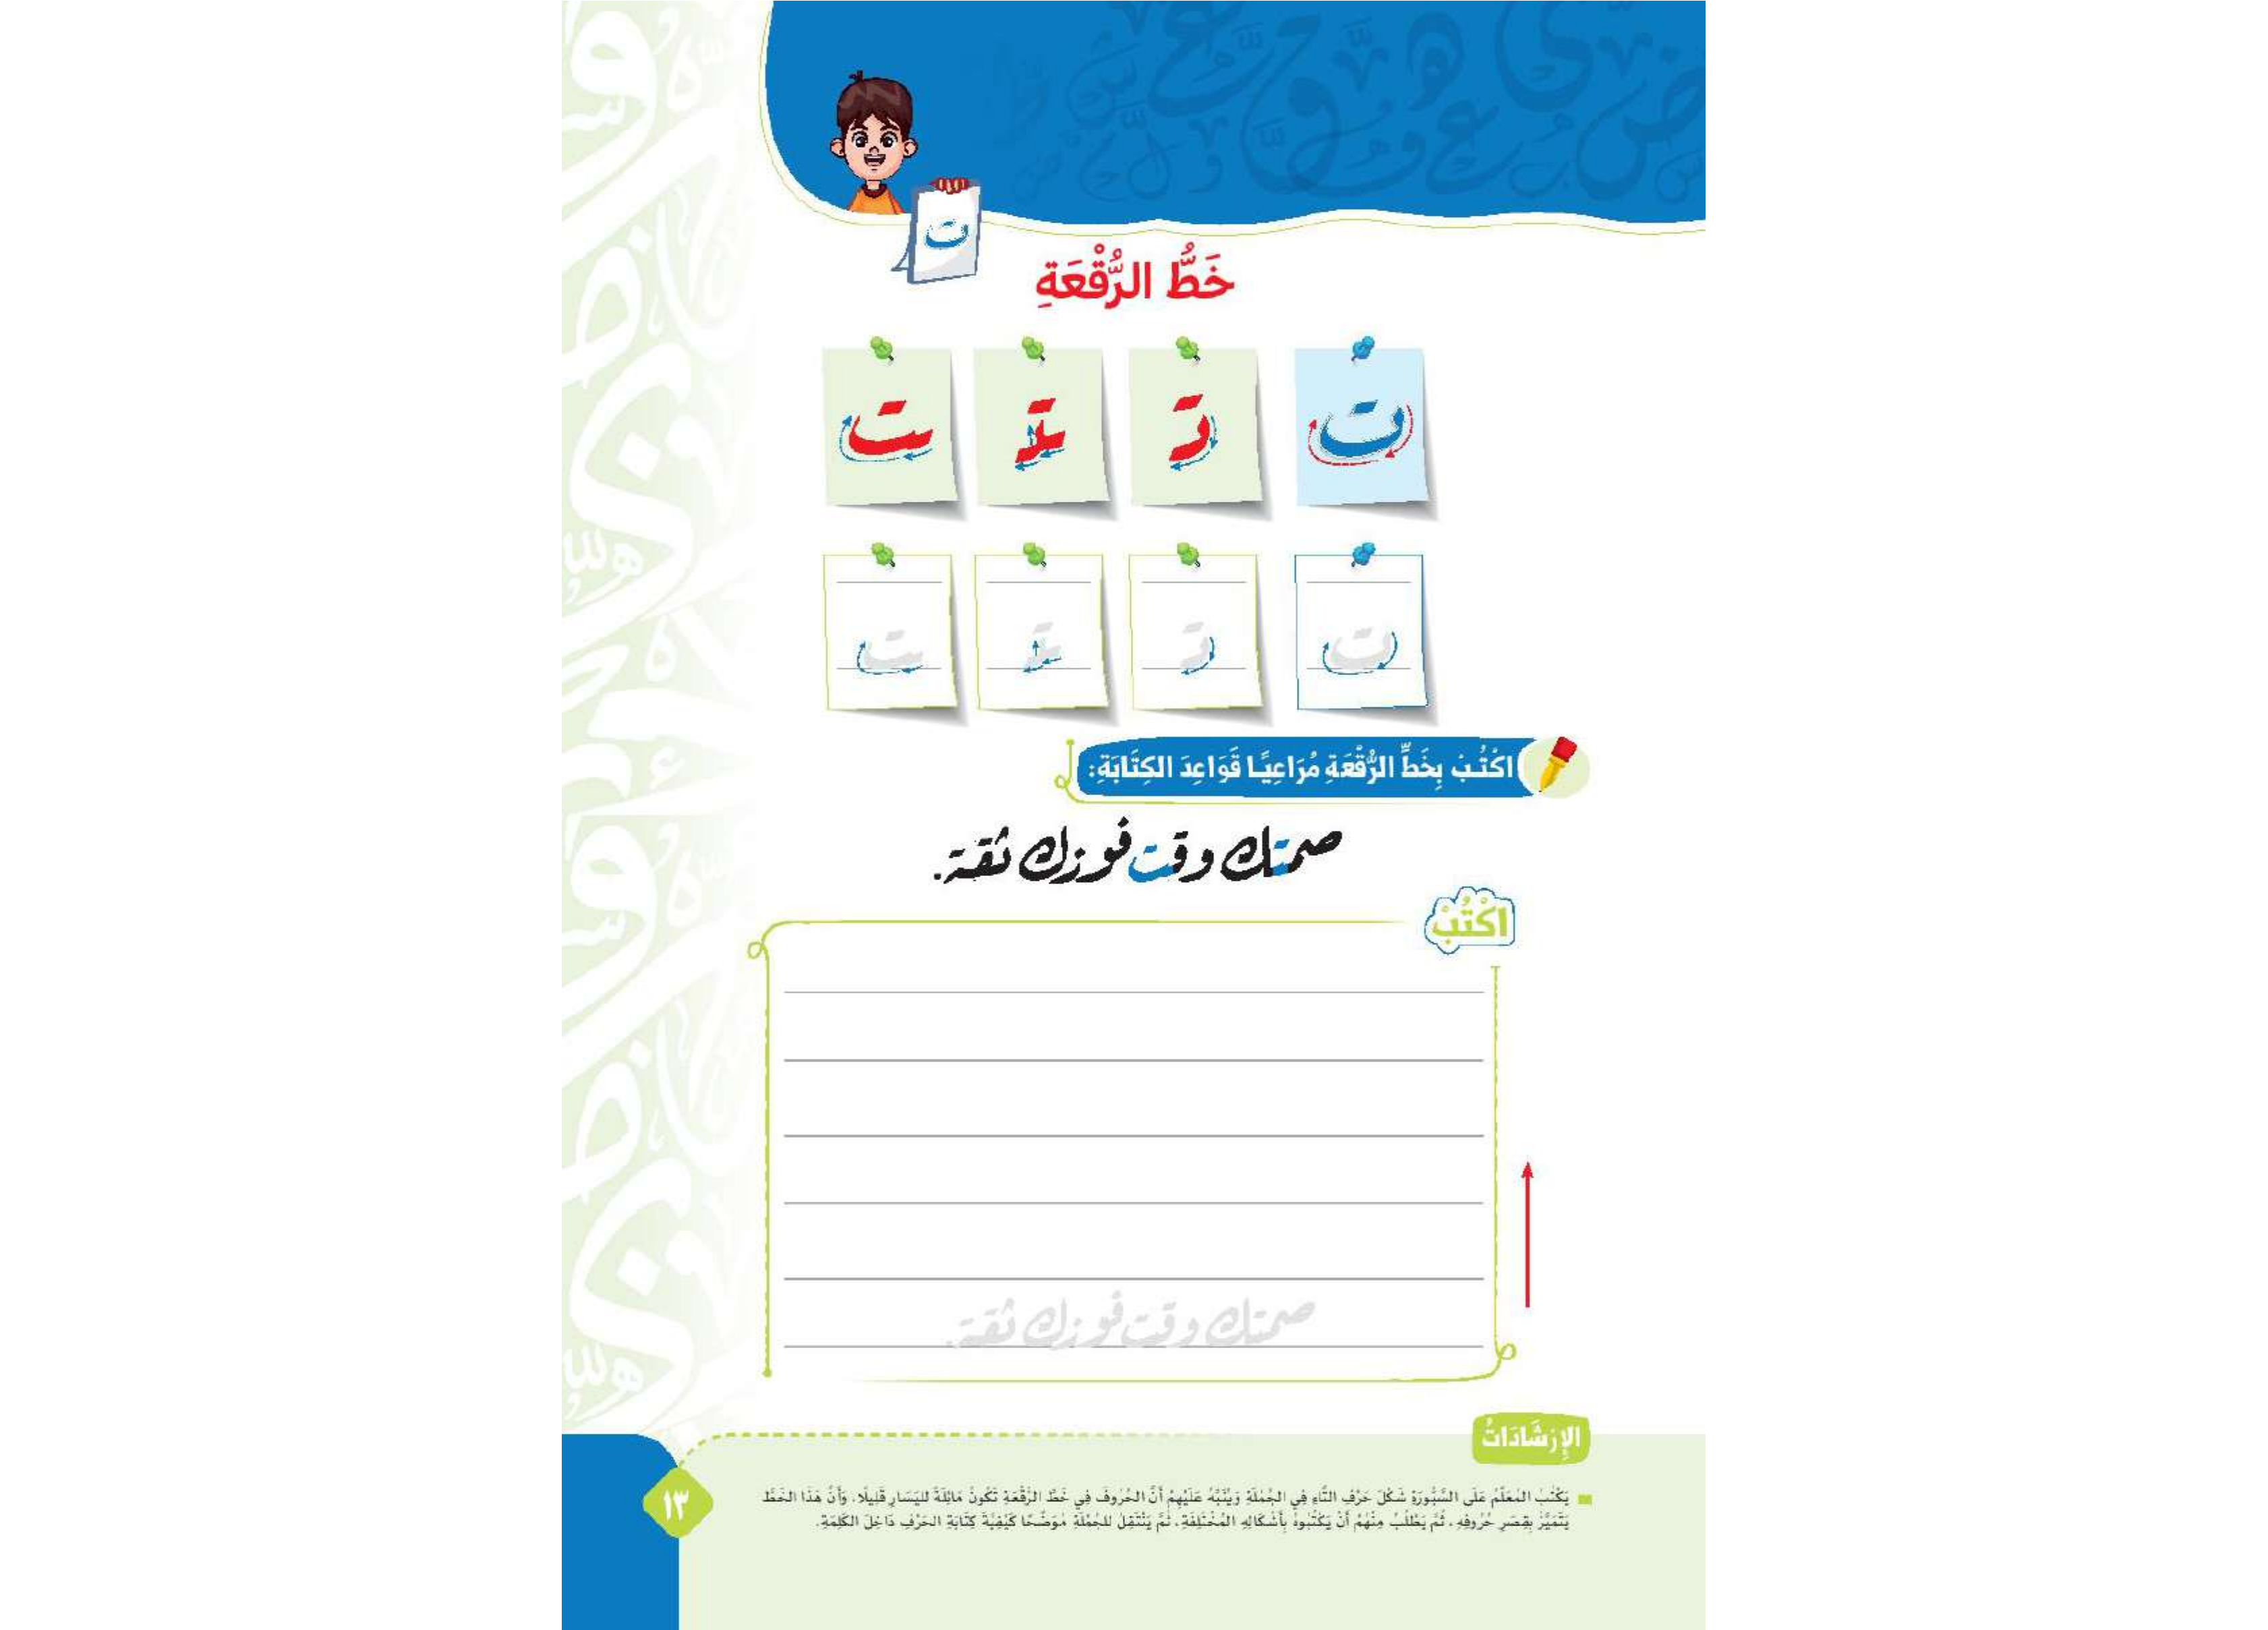 ت
خَطُّ الرُّقْعَةِ
ت تـ ـتـ ـت
ت تـ ـتـ ـت
اكْتُبْ بِخَطِّ الرُّقْعَةِ مُرَاعِيًا قَوَاعِدَ الكِتَابَةِ:
صمتك وقت فوزك ثقة.
اكْتُبْ
صمتك وقت فوزك ثقة.
الإِرْشَادَاتُ
يَكْتُبُ المُعَلِّمُ عَلَى السَّبُّورَةِ شَكْلَ حَرْفِ التَّاءِ فِي الجُمْلَةِ وَيُنَبِّهُ عَلَيْهِمْ أَنَّ الحُرُوفَ فِي خَطِّ الرُّقْعَةِ تَكُونُ مَائِلَةً لليَسَارِ قَلِيلًا، وَأَنَّ هَذَا الخَطَّ
يَتَمَيَّزُ بِقِصَرِ حُرُوفِهِ، ثُمَّ يَطْلُبُ مِنْهُمْ أَنْ يَكْتُبُوهُ بِأَشْكَالِهِ المُخْتَلِفَةِ، ثُمَّ يَنْتَقِلُ للجُمْلَةِ مُوَضِّحًا كَيْفِيَّةَ كِتَابَةِ الحَرْفِ دَاخِلَ الكَلِمَةِ.
١٣